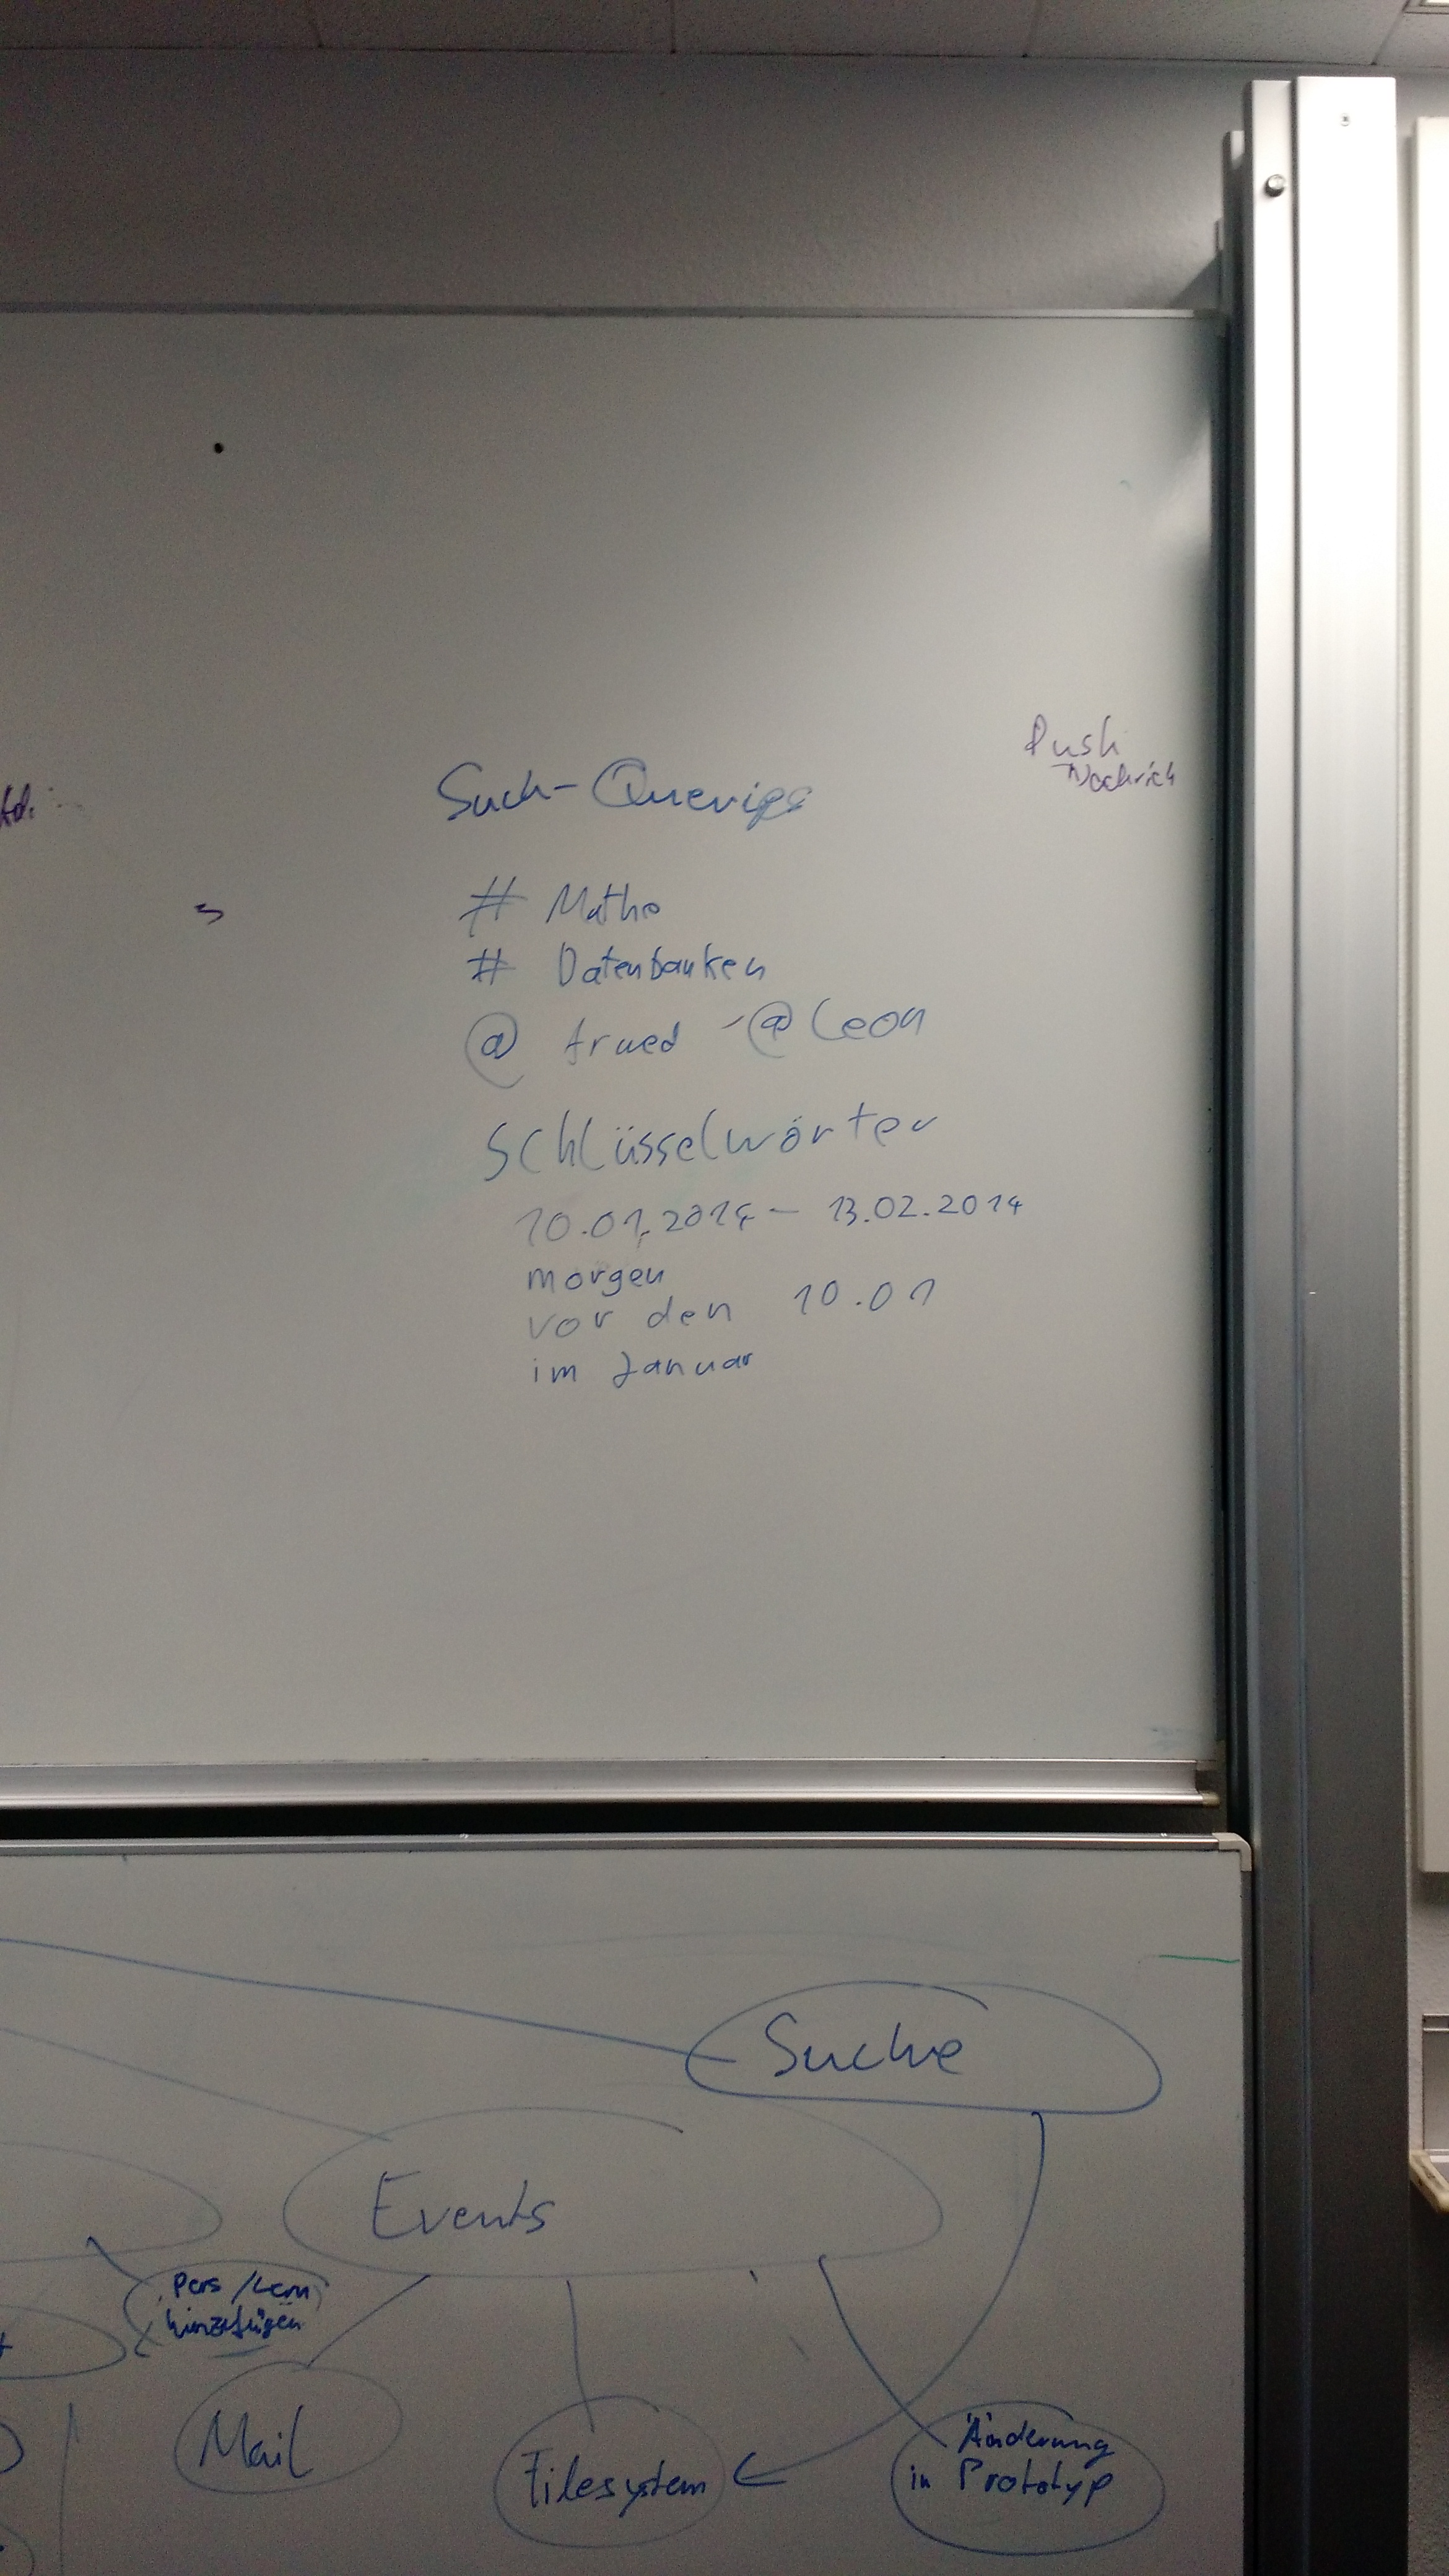 Push
Nachrich
Such-Queries
# Mathe
# Datenbanken
@ trued -@Leon
Schlüsselwörter
10.01.2014 - 13.02.2014
morgen
vor den 10.01
im Januar
Suche
Events
Pers/Lern
hinzufügen
Mail
Filesystem
Änderung
in Prototyp